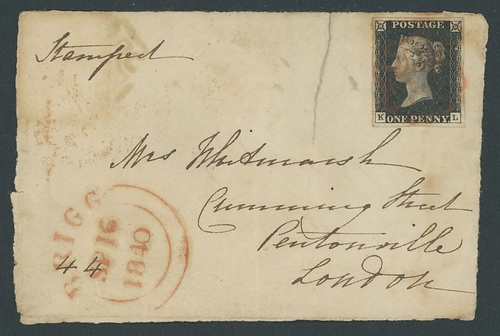 Stamped
POSTAGE
K ONE PENNY L
Mrs Whitmarsh
Cumming Street
Pentonville
London
BRIGG
SP 16
1840
44